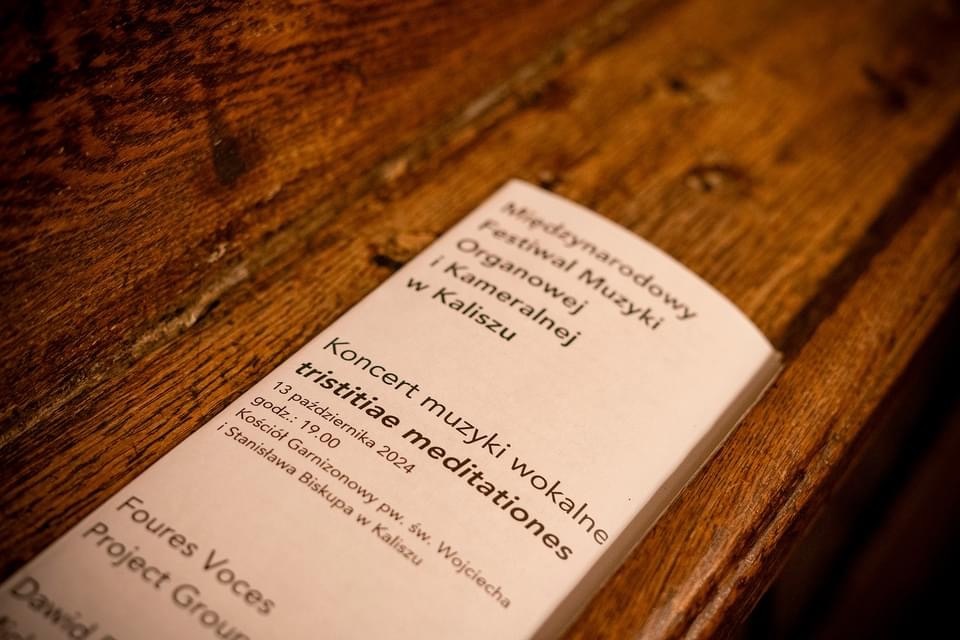 Międzynarodowy
Festiwal Muzyki
Organowej
i Kameralnej
w Kaliszu
Koncert muzyki wokalne
tristitiae meditationes
13 października 2024
godz.: 19.00
Kościół Garnizonowy pw. św. Wojciecha
i Stanisława Biskupa w Kaliszu
Foures Voces
Project Group
Dawid